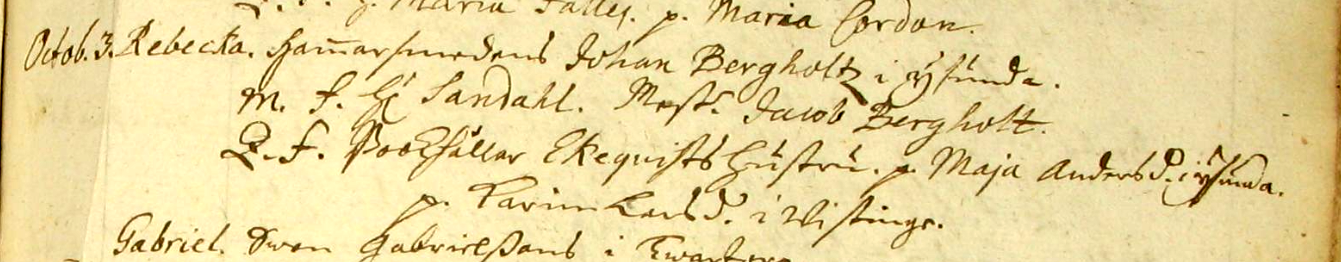 Maria Falles. p. Maria Cordon.
Octob. 3. Rebecka. Ham̄arsmedens Johan Bergholtz i Ysunda.
M. f. H. Sandahl. Mest. Jacob Bergholtt.
Q. f. Bookhållar Ekequists hustru. p. Maja Andersd. i Ysunda.
p. Karin Larsd. i Wistinge.
Gabriel. Swen Gabrielssons i